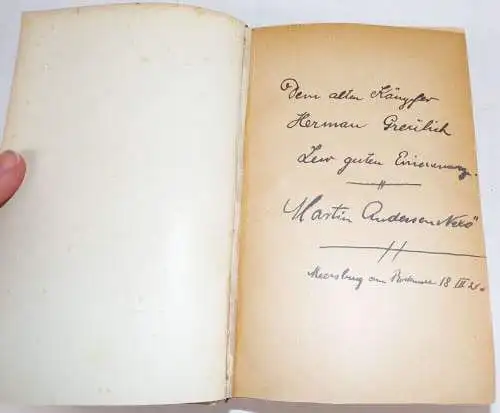 Dem alten Kämpfer
Herman Greulich
Zur guten Erinnerung.
Martin Andersen Nexö
Meersburg am Bodensee 18 III 2